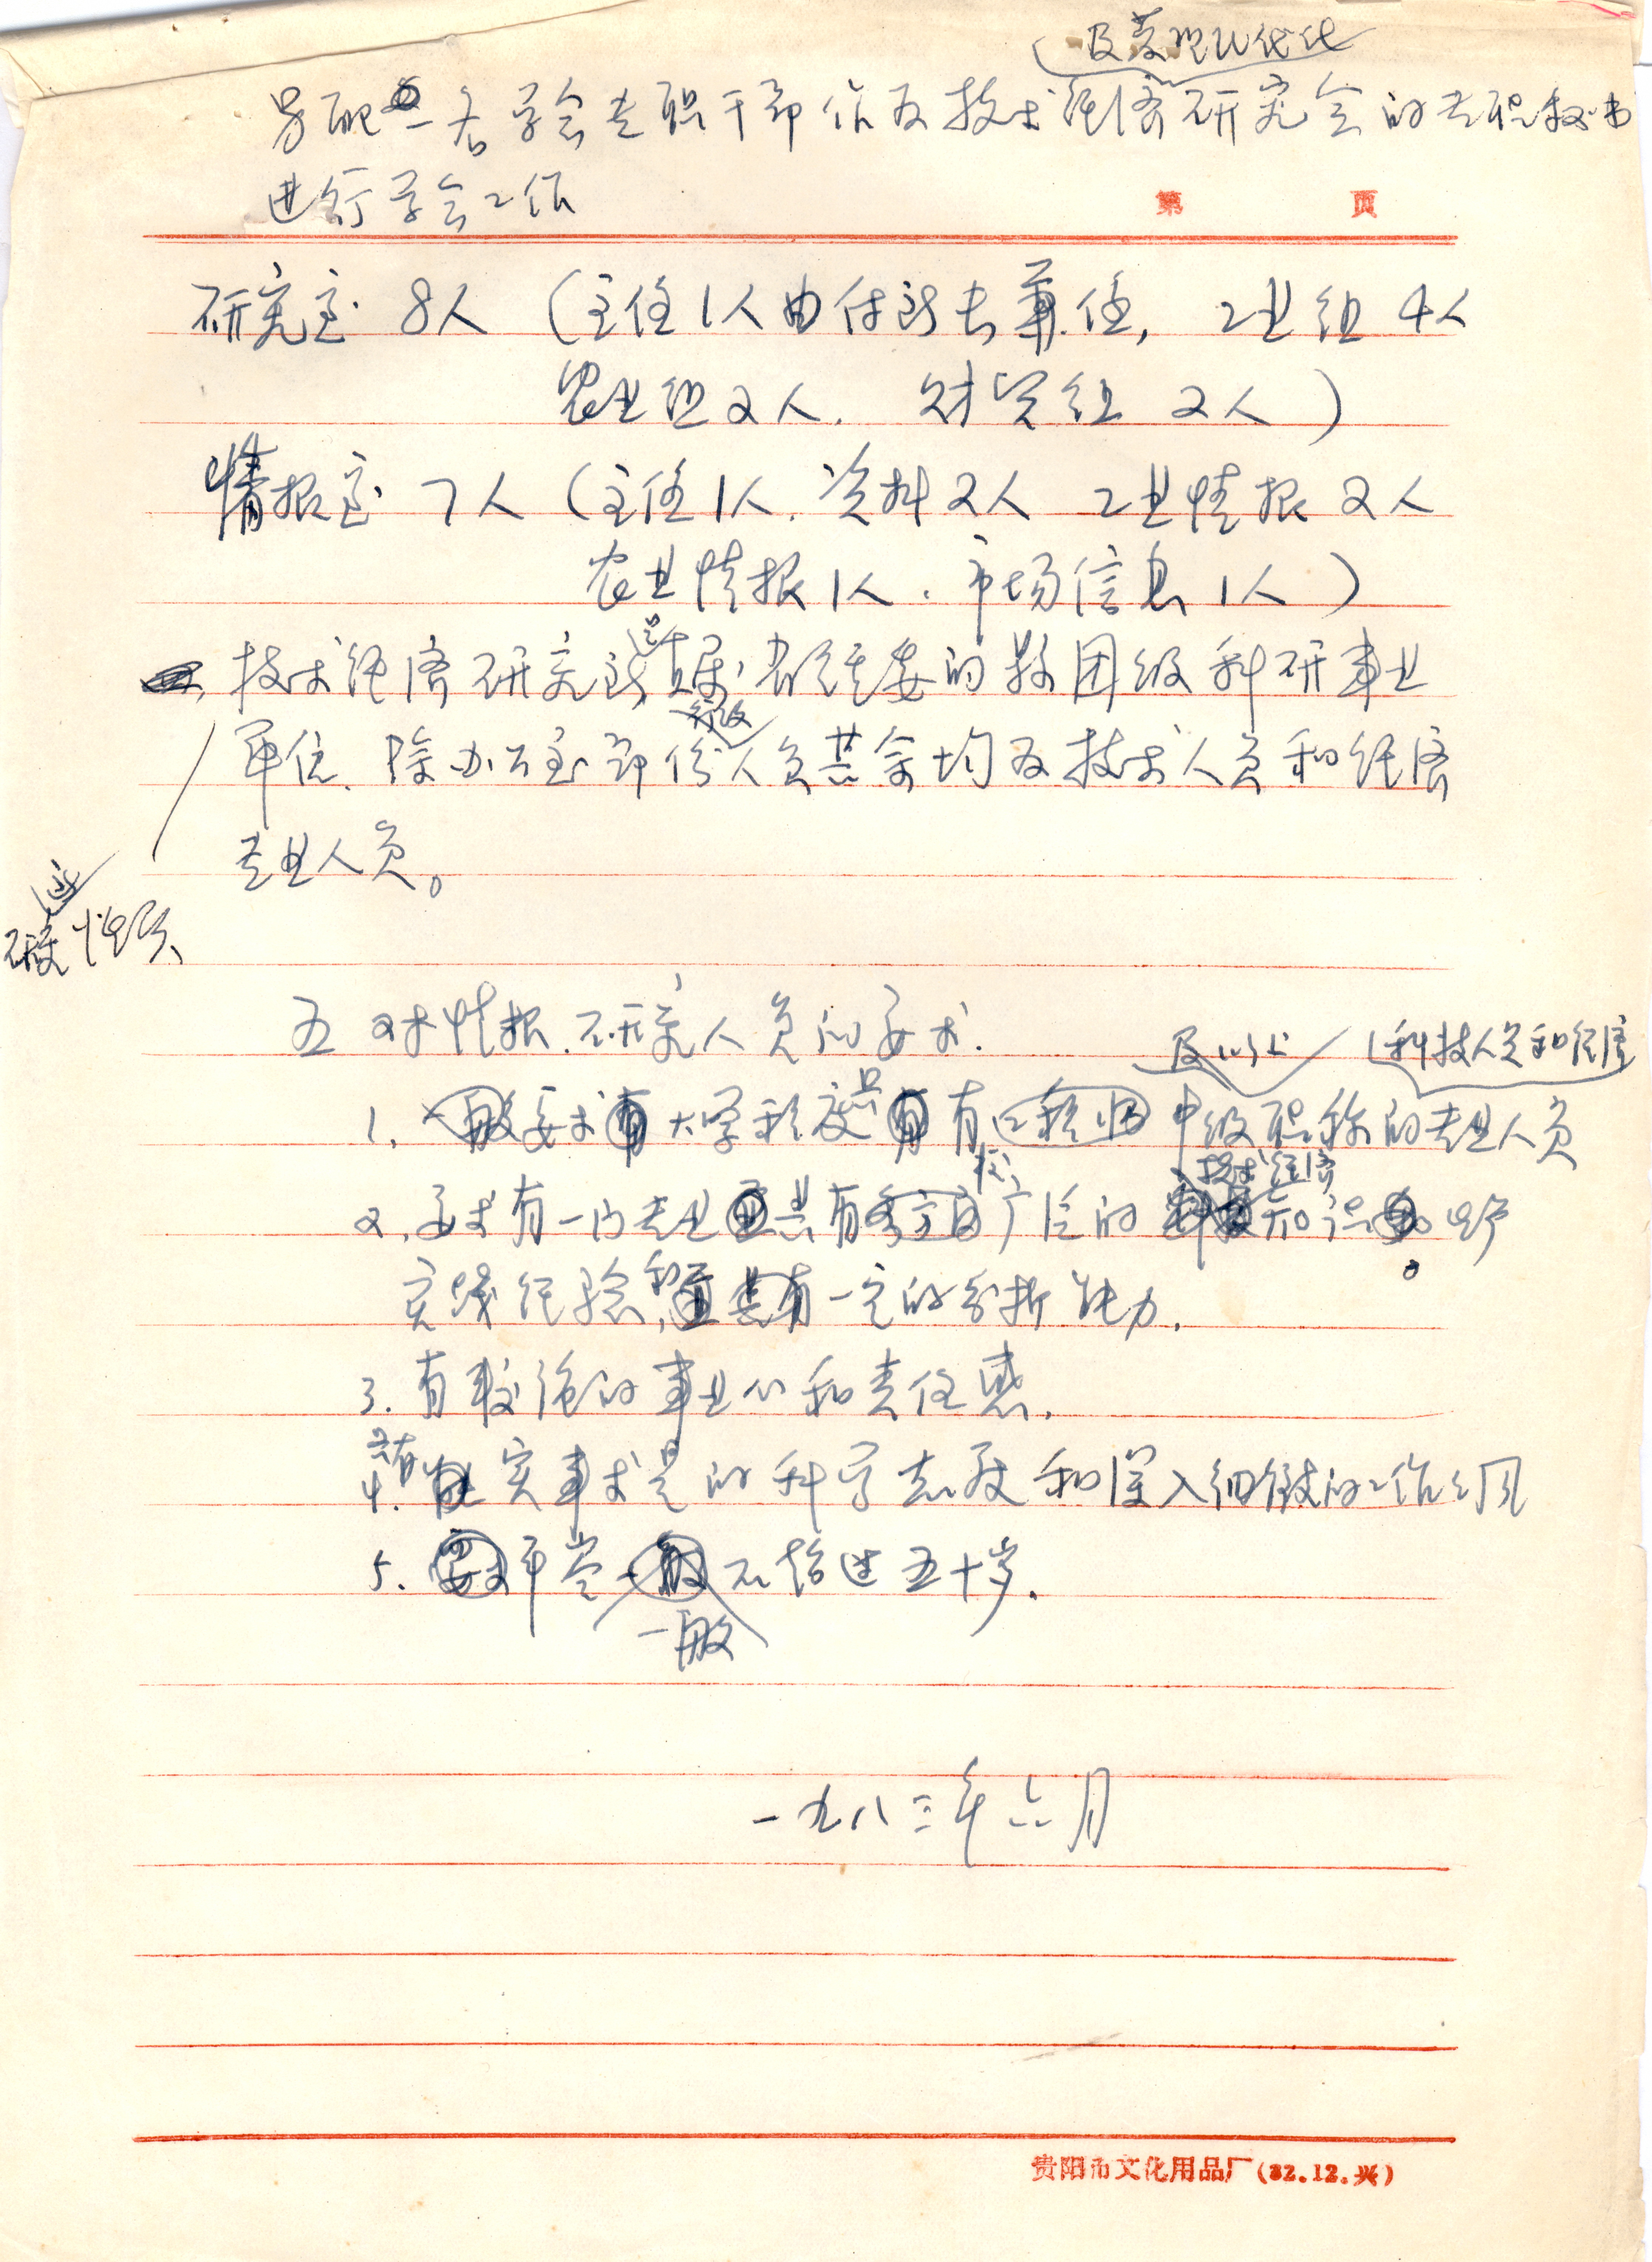 及管理现代化
另配一名学会专职干部作为技术经济研究会的专职秘书
进行学会工作
第 页
研究室 8人 (主任1人由付所长兼任, 工业组 4人
农业组2人. 财贸组 2人)
情报室 7人 (主任1人. 资料2人 工业情报 2人
农业情报1人. 市场信息1人)
是
技术经济研究所直属省经委的县团级科研事业
行政
单位. 除办公室部份人员其余均为技术人员和经济
专业人员。
五 对情报.研究人员的要求.
及以上 (科技人员和经济
1. 一般要求有大学程度具有 中级职称的专业人员
较 技术经济
2. 要求有一门专业 具有 广泛的 知识
实践经验, 和 具有一定的分析能力.
3. 有较强的事业心和责任感.
具有
4. 实事求是的科学态度和深入细致的工作作风
5. 要求年岁一般不超过五十岁.
一般
一九八三年六月
贵阳市文化用品厂(82.12.兴)